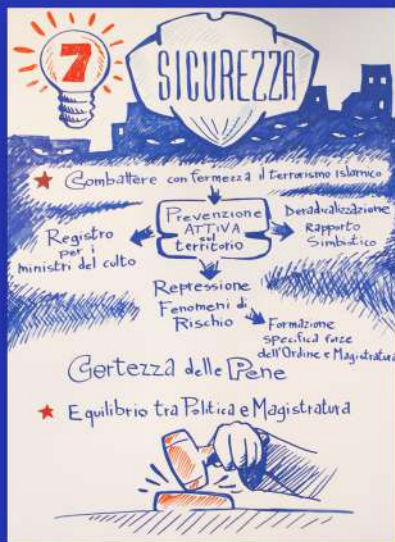 7
SICUREZZA
★ Combattere con fermezza il terrorismo islamico
Prevenzione
ATTIVA
sul
territorio
Registro
per i
ministri del culto
Deradicalizzazione
Rapporto
Simbiotico
Repressione
Fenomeni di
Rischio
Formazione
specifica forze
dell'Ordine e Magistratura
Certezza delle Pene
★ Equilibrio tra Politica e Magistratura